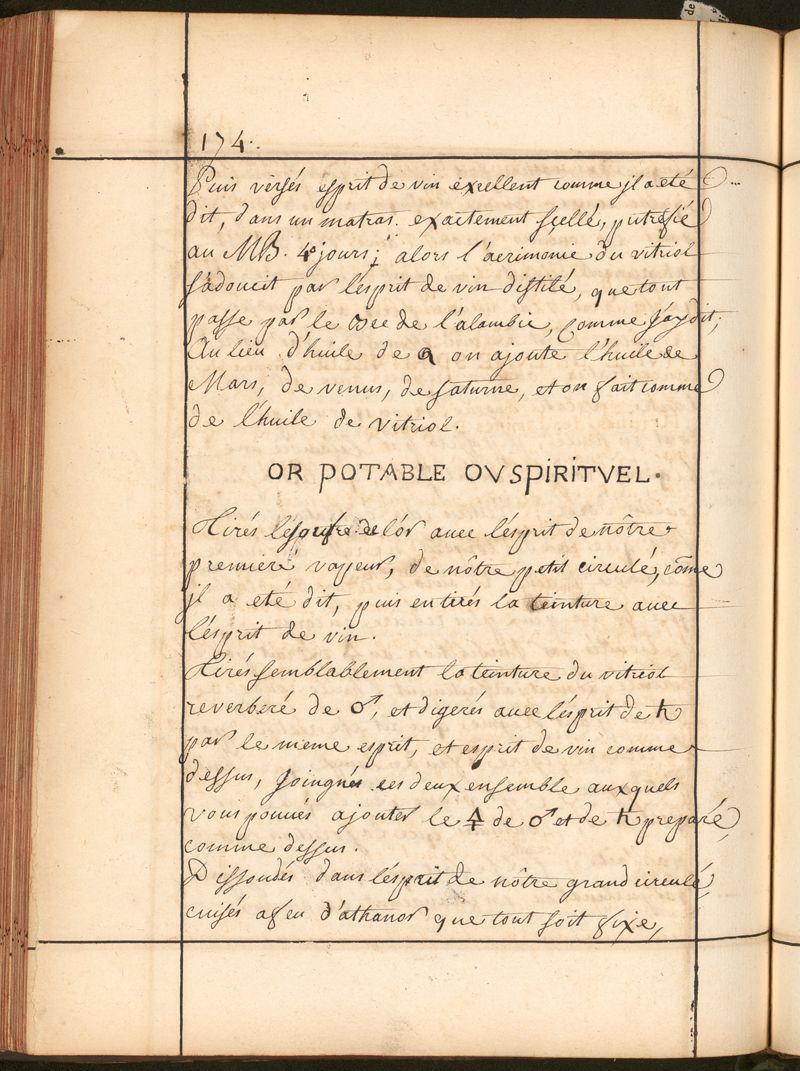 174.
Puis versés esprit de vin excellent comme jl a eté
dit, dans un matras exactement scellé, putrefié
au MB. 4 jours; alors l'acrimonie du vitriol
s'adoucit par l'esprit de vin distilé, que tout
passe par le bec de l'alambic, comme j'ay dit;
Au lieu d'huile de on ajoute l'huile de
Mars, de venus, de saturne, et on fait comme
de l'huile de vitriol.
OR POTABLE OV SPIRITVEL.
Tirés le soufre de l'or avec l'esprit de nôtre
premiere vapeur, de nôtre petit circulé, côme
jl a eté dit, puis en tirés la teinture avec
l'esprit de vin.
Tirés semblablement la teinture du vitriol
reverberé de ♂, et digerés avec l'esprit de ♄
par le meme esprit, et esprit de vin comme
dessus, joingnés ces deux ensemble auxquels
vous pouvés ajouter le 🜍 de ♂ et de ♄ preparé,
comme dessus.
Dissoudés dans l'esprit de nôtre grand circulé,
cuisés a feu d'athanor que tout soit fixe,